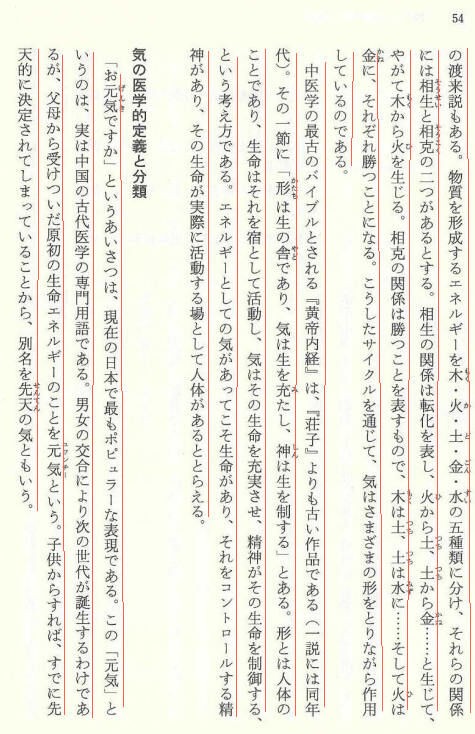 54
の渡来説もある。物質を形成するエネルギーを木・火・土・金・水の五種類に分け、それらの関係
には相生と相克の二つがあるとする。相生の関係は転化を表し、火から土、土から金……と生じて、
やがて木から火を生じる。相克の関係は勝つことを表すもので、木は土、土は水に……そして火は
金に、それぞれ勝つことになる。こうしたサイクルを通じて、気はさまざまの形をとりながら作用
しているのである。
中医学の最古のバイブルとされる『黄帝内経』は、『荘子』よりも古い作品である（一説には同年
代）。その一節に「形は生の舎であり、気は生を充たし、神は生を制する」とある。形とは人体の
ことであり、生命はそれを宿として活動し、気はその生命を充実させ、精神がその生命を制御する、
という考え方である。エネルギーとしての気があってこそ生命があり、それをコントロールする精
神があり、その生命が実際に活動する場として人体があるととらえる。
気の医学的定義と分類
「お元気ですか」というあいさつは、現在の日本で最もポピュラーな表現である。この「元気」と
いうのは、実は中国の古代医学の専門用語である。男女の交合により次の世代が誕生するわけであ
るが、父母から受けついだ原初の生命エネルギーのことを元気という。子供からすれば、すでに先
天的に決定されてしまっていることから、別名を先天の気ともいう。